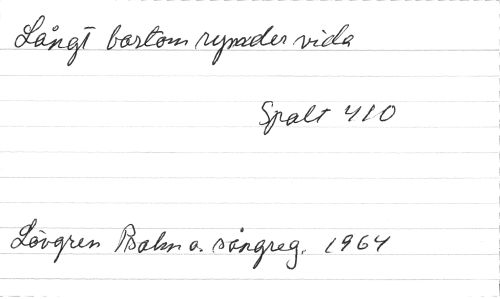 Långt bortom rymder vida
Spalt 410
Lövgren Psalm o. sångreg. 1964